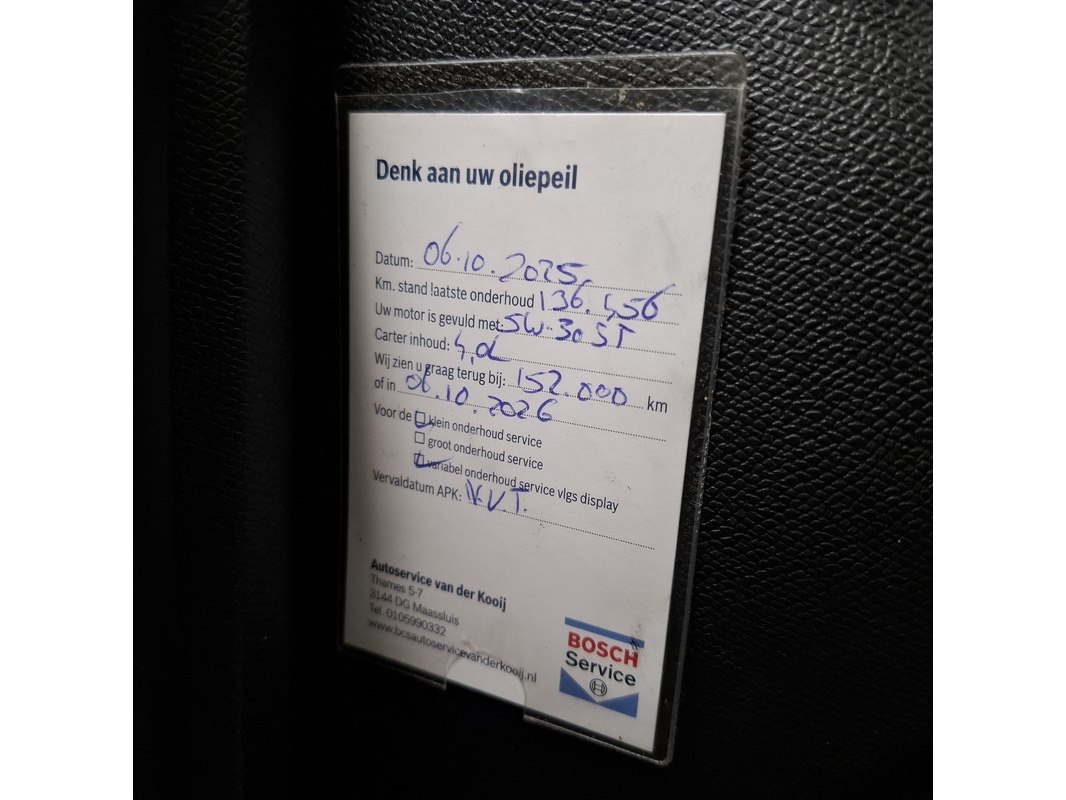 Denk aan uw oliepeil
Datum: 06.10.2025.
Km. stand laatste onderhoud 136.556
Uw motor is gevuld met: 5W-30 ST
Carter inhoud:
Wij zien u graag terug bij: 152.000 km
of in 06.10.2026
Voor de klein onderhoud service
groot onderhoud service
variabel onderhoud service vlgs display
Vervaldatum APK: N.V.T.
Autoservice van der Kooij
Thames 5-7
3144 DG Maassluis
Tel. 0105990332
www.bcsautoservicevanderkooij.nl
BOSCH
Service